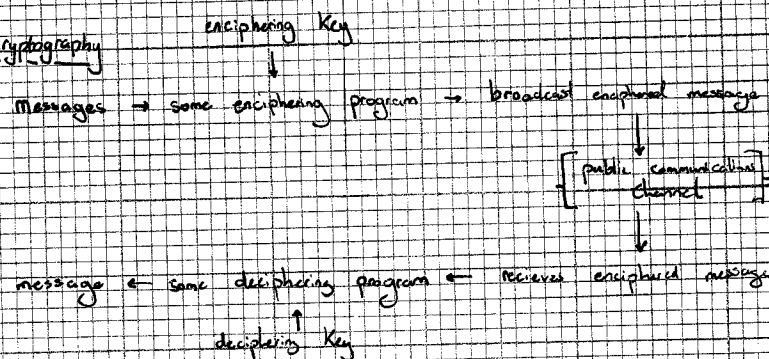 enciphering Key
ryptography
Messages → some enciphering program → broadcast enciphered message
[public communications]
channel
message ← some deciphering program ← recieves enciphered message
deciphering Key